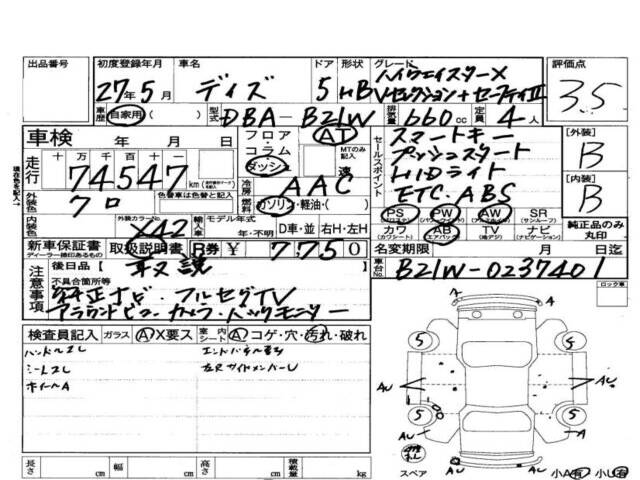 出品番号 初度登録年月 車名 ドア 形状 グレード 評価点
27年5月 デイズ 5 HB ハイウェイスターX
Vセレクション+セーフティII 3.5
車歴 自家用( ) 型式 DBA-B21W 排気量 660cc 定員 4人
車検 年 月 日 フロア・コラム・ダッシュ AT MTのみ記入 速
セールスポイント スマートキー
プッシュスタート
HIDライト
ETC.ABS
[外装] B
[内装] B
走行 十万 万 千 百 十 一 74547 km
冷房 AAC
外装色 クロ 色替車は色替と記入 燃料 ガソリン・軽油・( )
内装色 外装カラーNo. X42 輸入車 モデル年式 年・不明 D車・並 右H・左H
PS PW AW SR (サンルーフ)
カワ (カワシート) AB (エアバッグ) TV (地デジ) ナビ
純正品のみ丸印
新車保証書 ディーラー捺印あるもの 取扱説明書 R券 ¥ 7750
名変期限 月 日迄
車台No. B21W-0237401
注意事項 後日品【 取説 】
不具合箇所等
純正ナビ・フルセグTV
アラウンドビューカメラ・バックモニター
ロック車
検査員記入 ガラス A X要ス 室内 シート A コゲ・穴・汚れ・破れ
ハンドルスレ
シートスレ
ホイールA
左右サイドメンバーU
A A
AU AU
5 5
5 5
AU AU A
スペア 小A有 小U有
長さ cm 幅 cm 高さ cm 積載量 kg